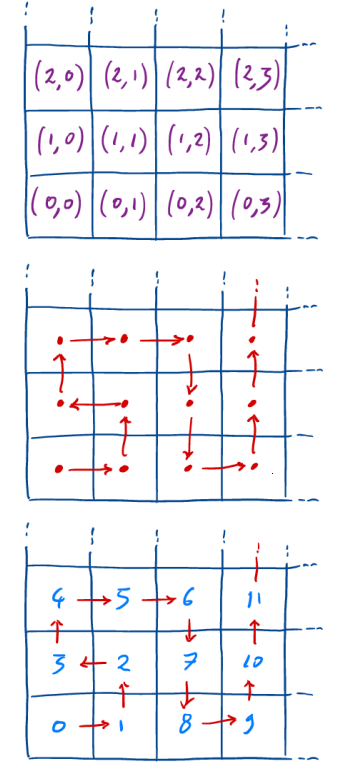 (2,0) (2,1) (2,2) (2,3)
(1,0) (1,1) (1,2) (1,3)
(0,0) (0,1) (0,2) (0,3)
4 5 6 11
3 2 7 10
0 1 8 9